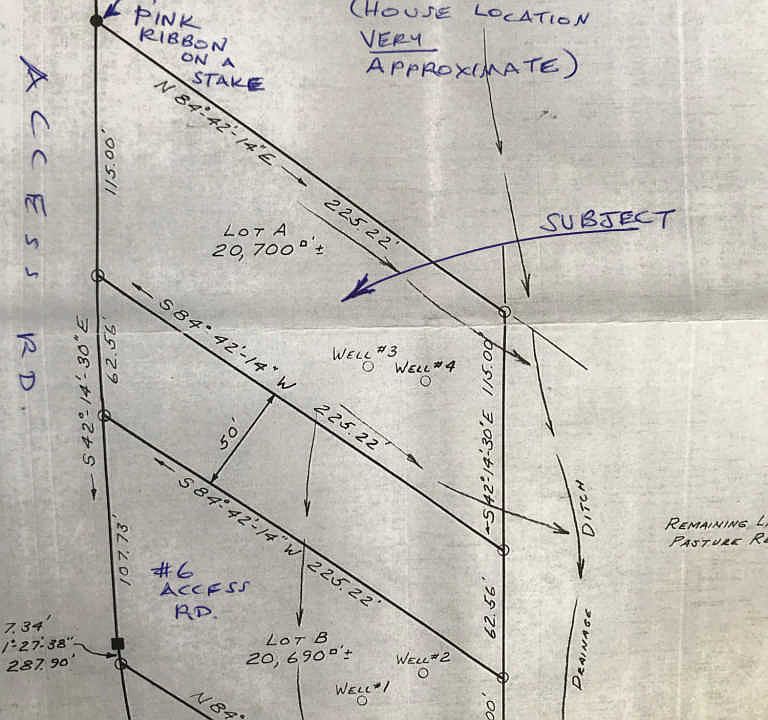 PINK
RIBBON
ON A
STAKE
(HOUSE LOCATION
VERY
APPROXIMATE)
ACCESS RD.
N 84°-42'-14" E
225.22'
115.00'
SUBJECT
LOT A
20,700 □'±
S 84°-42'-14" W
225.22'
WELL #3
WELL #4
S 42°-14'-30" E
62.56'
S 42°-14'-30" E 115.00'
50'
S 84°-42'-14" W
225.22'
DRAINAGE DITCH
REMAINING
PASTURE
107.73'
#6
ACCESS
RD.
62.56'
7.34'
1°-27'-38"
287.90'
LOT B
20,690 □'±
WELL #2
WELL #1
N 84°
00'